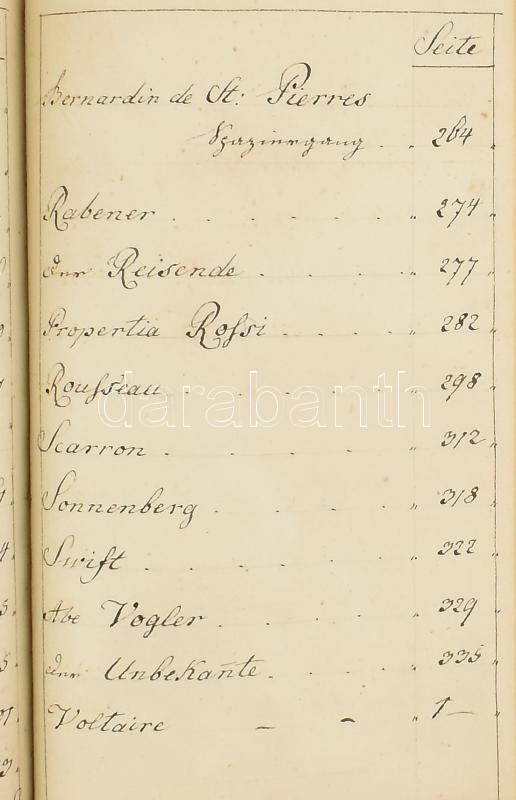 Seite
Bernardin de St: Pierres
Spaziergang . „ 264 „
Rabener . . . . . . „ 274 „
der Reisende . . . . „ 277 „
Propertia Rossi . . . . „ 282 „
Rousseau . . . . . „ 298 „
darabanth
Scarron . . . . . „ 312 „
Sonnenberg . . . . „ 318 „
Swift . . . . . . „ 322 „
Abe Vogler . . . . „ 329 „
der Unbekante . . . . „ 335 „
Voltaire – – „ 1 – „